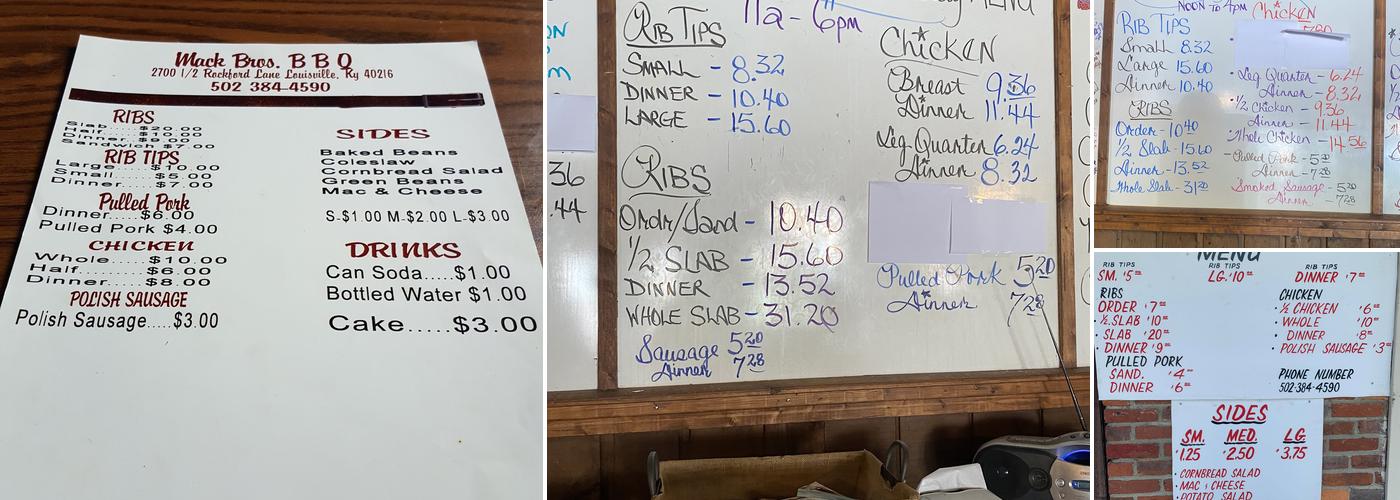 Mack Bros. B B Q
2700 1/2 Rockford Lane Louisville, Ky 40216
502 384-4590
RIBS
Slab.....$20.00
Half.....$10.00
Dinner...$9.00
Sandwich $7.00
RIB TIPS
Large....$10.00
Small....$5.00
Dinner...$7.00
Pulled Pork
Dinner.....$6.00
Pulled Pork $4.00
CHICKEN
Whole.....$10.00
Half........$6.00
Dinner.....$8.00
POLISH SAUSAGE
Polish Sausage.....$3.00
SIDES
Baked Beans
Coleslaw
Cornbread Salad
Green Beans
Mac & Cheese
S-$1.00 M-$2.00 L-$3.00
DRINKS
Can Soda.....$1.00
Bottled Water $1.00
Cake.....$3.00
36
.44
11a - 6pm
MENU
RIB TIPS
SMALL - 8.32
DINNER - 10.40
LARGE - 15.60
RIBS
Ordr/Sand - 10.40
1/2 SLAB - 15.60
DINNER - 13.52
WHOLE SLAB - 31.20
Sausage 5.20
Dinner 7.28
Chicken
Breast 9.36
Dinner 11.44
Leg Quarter 6.24
Dinner 8.32
Pulled Pork 5.20
Dinner 7.28
NOON to 4pm
RIB TIPS
Small 8.32
Large 15.60
Dinner 10.40
RIBS
Order - 10.40
1/2 Slab - 15.60
Dinner - 13.52
Whole Slab - 31.20
Chicken
Leg Quarter - 6.24
Dinner - 8.32
1/2 Chicken - 9.36
Dinner - 11.44
Whole Chicken - 14.56
Pulled Pork - 5.20
Dinner - 7.28
Smoked Sausage - 5.20
Dinner - 7.28
MENU
RIB TIPS
SM. $5.00
RIB TIPS
LG. $10.00
RIB TIPS
DINNER $7.00
RIBS
ORDER $7.00
½ SLAB $10.00
SLAB $20.00
DINNER $9.00
PULLED PORK
SAND. $4.00
DINNER $6.00
CHICKEN
½ CHICKEN $6.00
WHOLE $10.00
DINNER $8.00
POLISH SAUSAGE $3.00
PHONE NUMBER
502-384-4590
SIDES
SM. MED. LG.
$1.25 $2.50 $3.75
CORNBREAD SALAD
MAC & CHEESE
POTATO SALAD